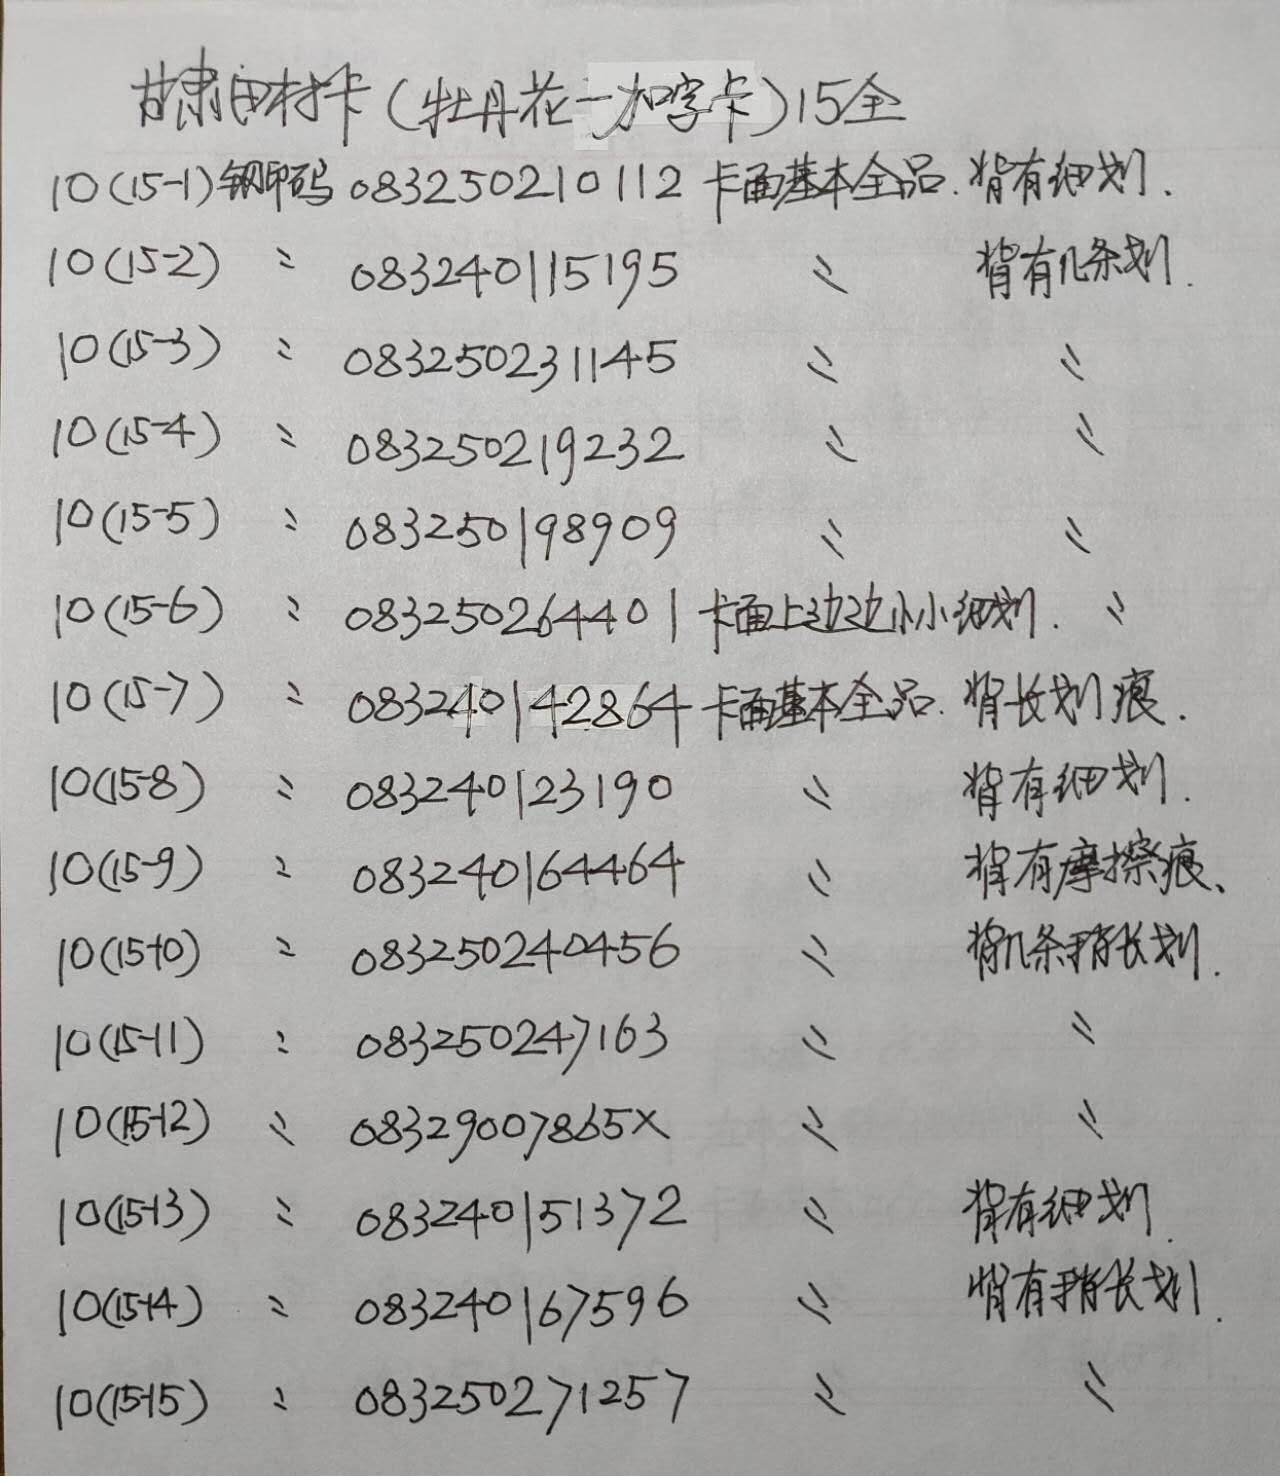 甘肃田村卡(牡丹花-加字卡)15全
10(15-1)钢印码 083250210112 卡面基本全品.背有细划.
10(15-2) 〃 083240115195 〃 背有几条划.
10(15-3) 〃 083250231145 〃 〃
10(15-4) 〃 083250219232 〃 〃
10(15-5) 〃 083250198909 〃 〃
10(15-6) 〃 083250264401 卡面上边边小小细划. 〃
10(15-7) 〃 083240142864 卡面基本全品. 背长划痕.
10(15-8) 〃 083240123190 〃 背有细划.
10(15-9) 〃 083240164464 〃 背有摩擦痕、
10(15-10) 〃 083250240456 〃 背几条稍长划.
10(15-11) 〃 083250247163 〃 〃
10(15-12) 〃 08329007865X 〃 〃
10(15-13) 〃 083240151372 〃 背有细划.
10(15-14) 〃 083240167596 〃 背有稍长划.
10(15-15) 〃 083250271257 〃 〃